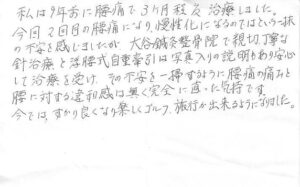 私は9年前に腰痛で3カ月程度治療しました。
今回2回目の腰痛になり、慢性化になるのではという一抹
の不安を感じましたが大谷鍼灸整骨院で親切丁寧な
針治療と浮腰式自重牽引は写真入りの説明もあり安心
して治療を受け、その不安を一掃するように腰痛の痛みと
腰に対する違和感は無く完全に直った気持です。
今では、すっかり良くなり楽しくゴルフ、旅行が出来るようになりました。